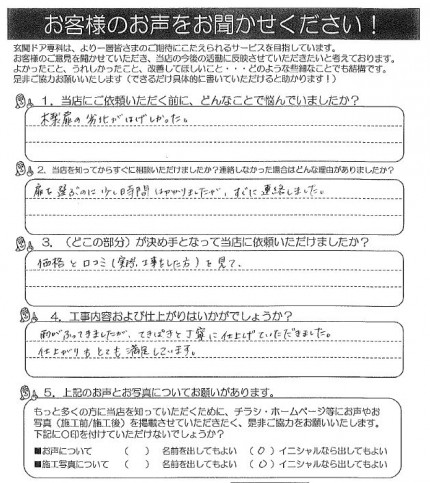 お客様のお声をお聞かせください！
玄関ドア専科は、より一層皆さまのご期待にこたえられるサービスを目指しています。
お客様のご意見を聞かせていただき、当店の今後の活動に反映させていただきたいと考えております。
よかったこと、うれしかったこと、改善してほしいこと・・・どのような些細なことでも結構です。
是非ご協力お願いいたします（できるだけ具体的に書いていただけると助かります！）
1．当店にご依頼いただく前に、どんなことで悩んでいましたか？
木製扉の劣化がはげしかった。
2．当店を知ってからすぐに相談いただけましたか？連絡しなかった場合はどんな理由がありましたか？
扉を選ぶのに少し時間はかかりましたが、すぐに連絡しました。
3．（どこの部分）が決め手となって当店に依頼いただけましたか？
価格と口コミ（実際、工事をした方）を見て、
4．工事内容および仕上がりはいかがでしょうか？
雨がふってきましたが、てきぱきと丁寧に仕上げていただきました。
仕上がりもとても満足しています。
5．上記のお声とお写真についてお願いがあります。
もっと多くの方に当店を知っていただくために、チラシ・ホームページ等にお声やお
写真（施工前/施工後）を掲載させていただきたく、是非ご協力をお願いいたします。
下記に〇印を付けていただけないでしょうか？
■お声について （　） 名前を出してもよい （〇）イニシャルなら出してもよい
■施工写真について （　） 名前を出してもよい （〇）イニシャルなら出してもよい